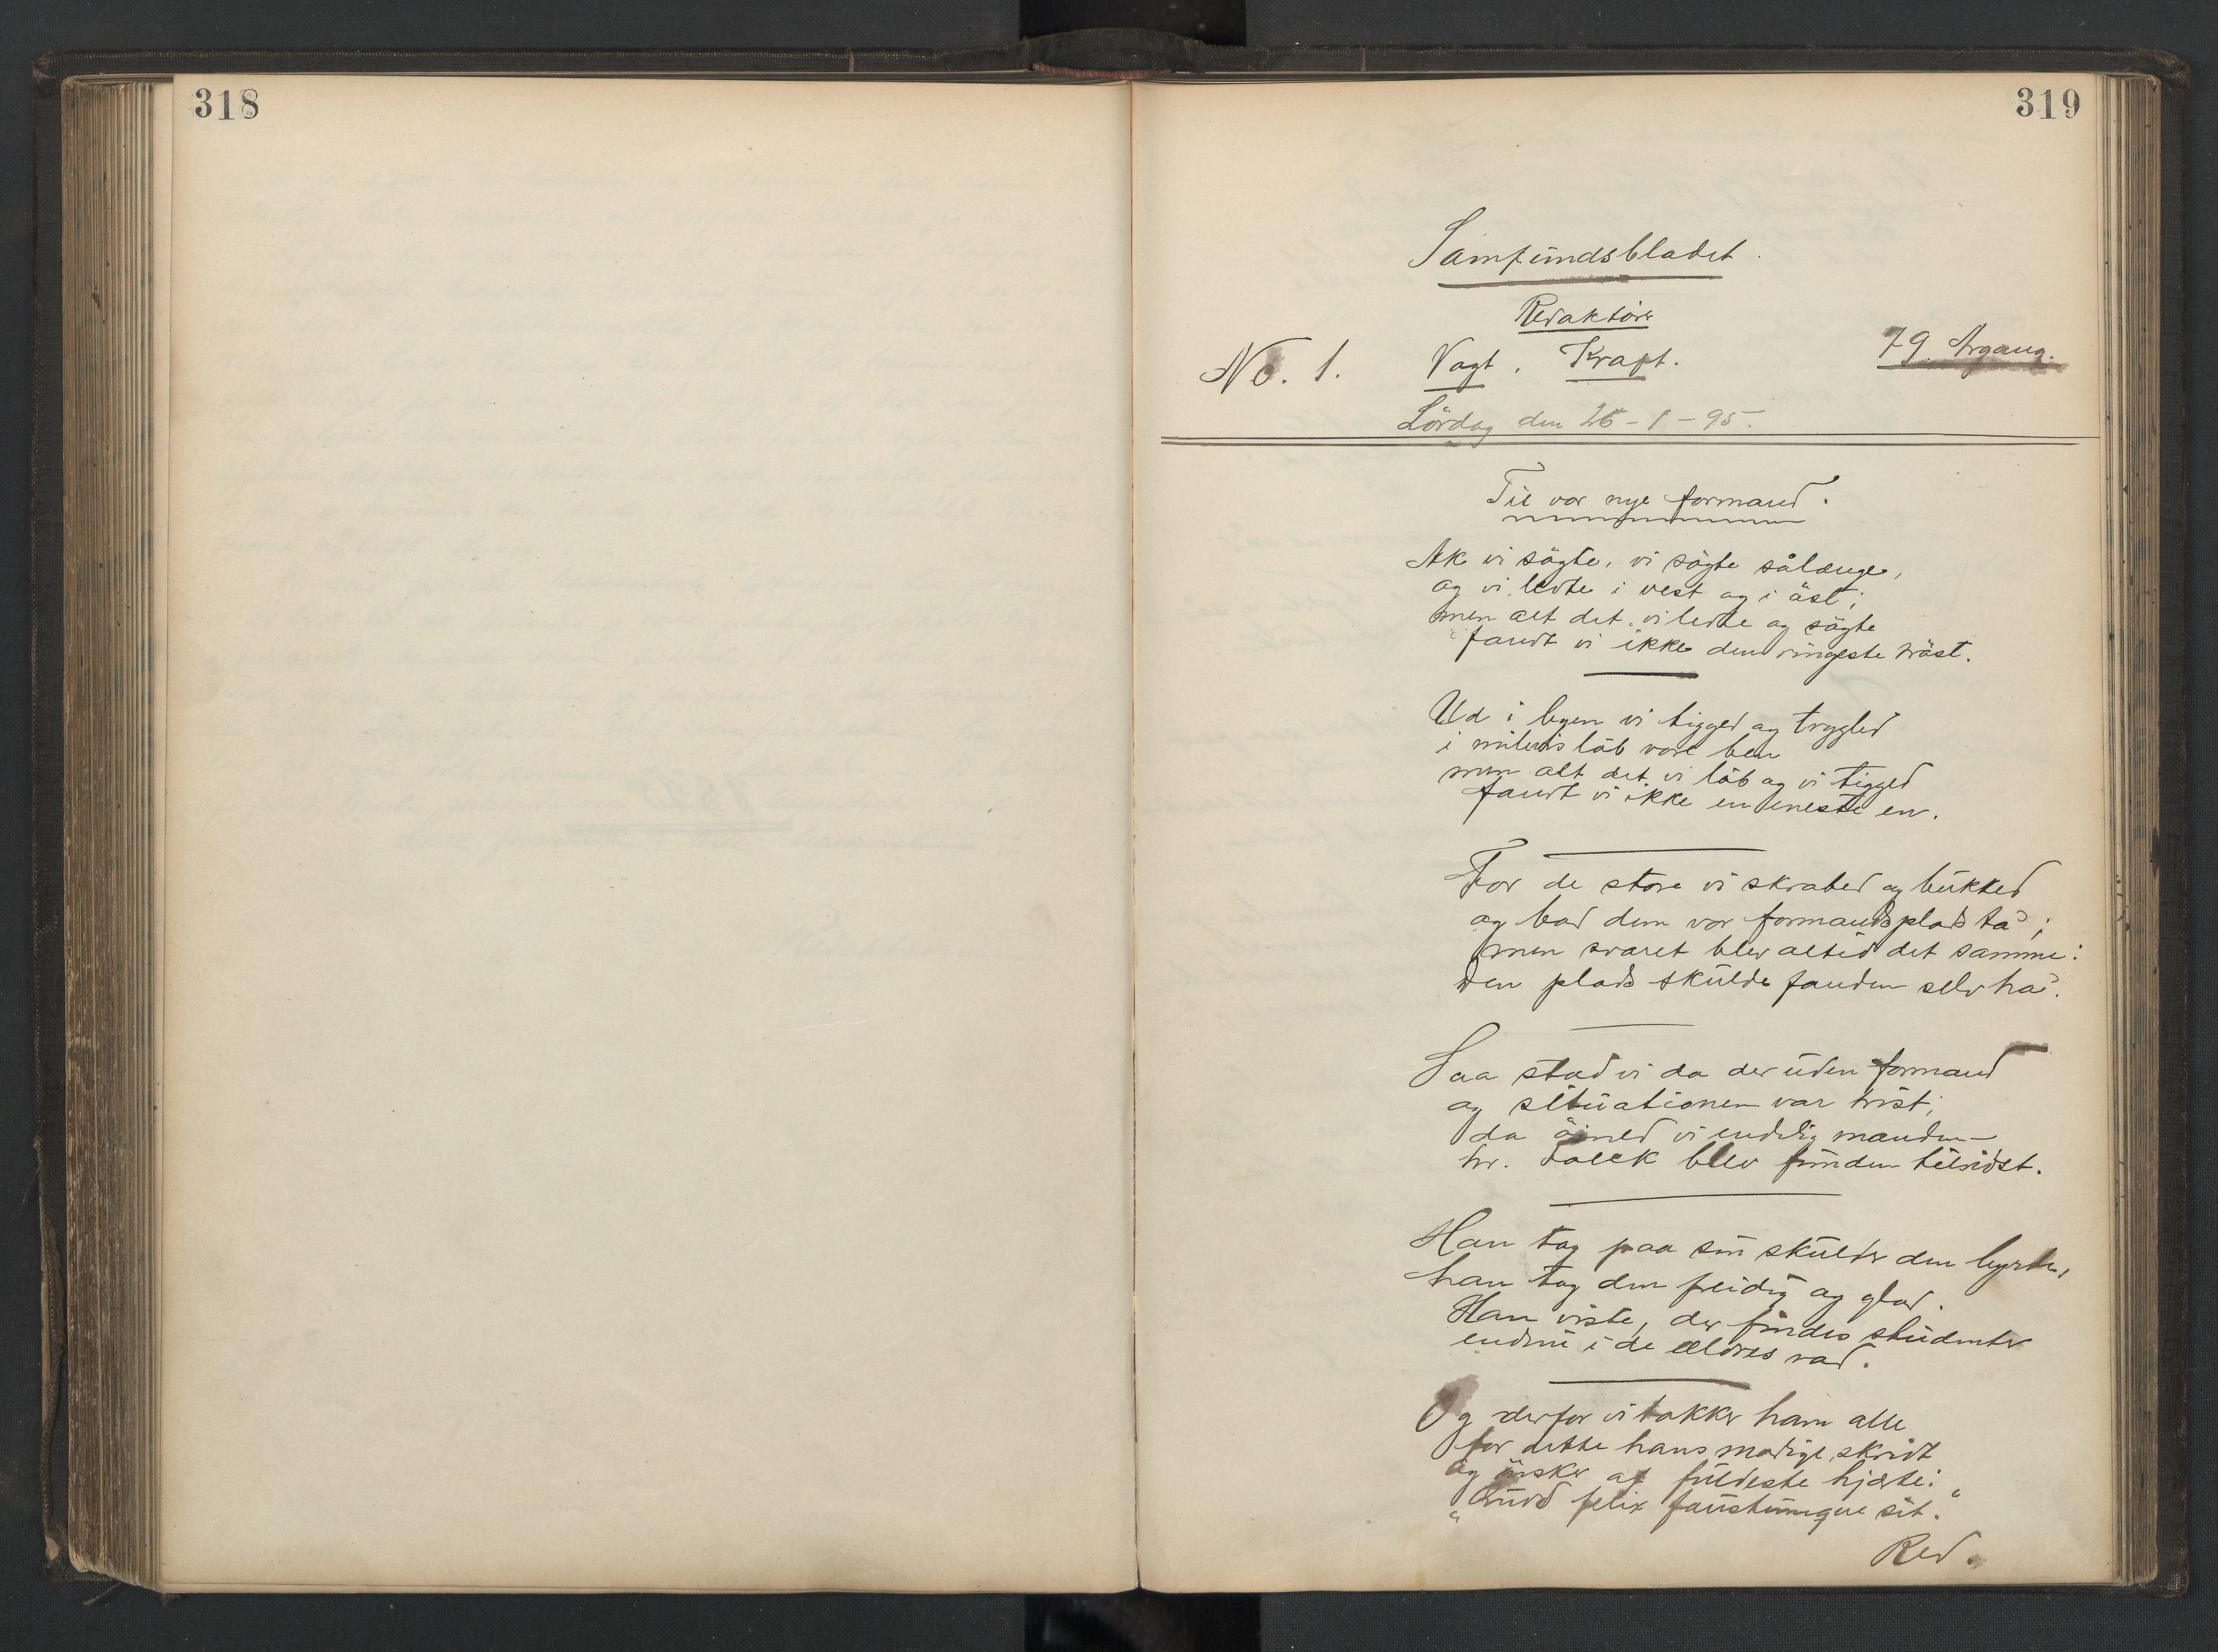 318
319
Samfundsbladet.
Redaktör
No. 1. Vogt, Kraft. 79. Årgang.
Lördag den 26-1-95.
Til vor nye formand.
Ak vi sögte, vi sögte sålænge,
og vi ledte i vest og i öst;
men alt det vi ledte og sögte
fandt vi ikke den ringeste tröst.
Ud i byen vi tigged og trygled
i milevis löb vore ben
men alt det vi löb og vi tigged
fandt vi ikke en eneste en.
For de store vi skrabed og bukked
og bad dem vor formandsplads ta';
men svaret blev altid det samme:
den plads skulde fanden selv ha'.
Saa stod vi da der uden formand
og situationen var trist;
da öined vi endelig manden –
hr. Falck blev funden tilsidst.
Han tog paa sin skulder den byrde,
han tog den freidig og glad.
Han viste, der findes studenter
endnu i de ældres rad.
Og derfor vi takker ham alle
for dette hans modige skridt
og önsker af fuldeste hjærte:
"Quod felix faustumque sit."
Red.
1895